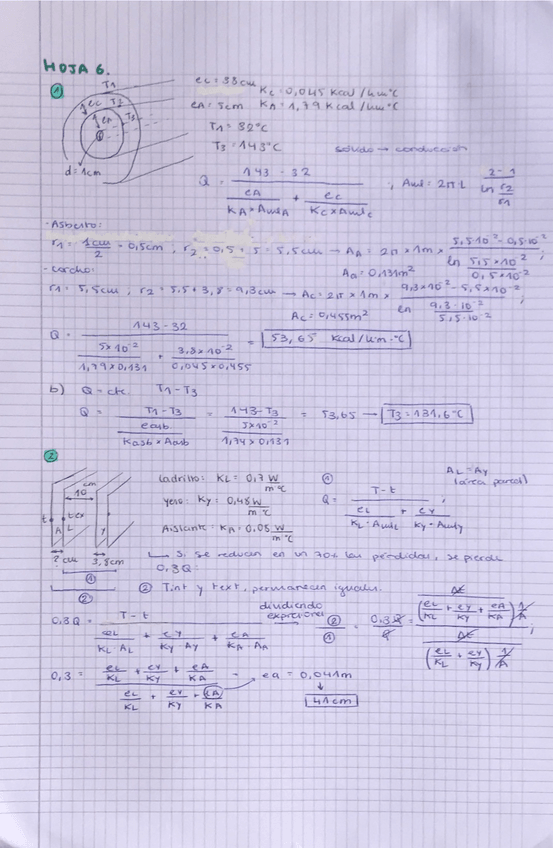 HOJA 6.
① T1 ec = 38cm Kc = 0,045 Kcal/h·m·°C
ec T2 T3 eA = 5cm KA = 1,79 Kcal/h·m·°C
eA
T1 = 32°C
T3 = 143°C sólido → conducción
d = 1cm
Q = 143 - 32 / (eA / KA × AmlA + ec / Kc × Amlc) ; Aml = 2π L (2 - 1) / ln (r2 / r1)
- Asbesto:
r1 = 1cm / 2 = 0,5cm, r2 = 0,5 + 5 = 5,5cm → AA = 2π × 1m × (5,5·10⁻² - 0,5·10⁻²) / ln (5,5×10⁻² / 0,5×10⁻²) ;
AA = 0,131m²
- corcho:
r1 = 5,5cm ; r2 = 5,5 + 3,8 = 9,3cm → Ac = 2π × 1m × (9,3×10⁻² - 5,5×10⁻²) / ln (9,3·10⁻² / 5,5·10⁻²) ;
Ac = 0,455m²
Q = 143 - 32 / (5×10⁻² / 1,79×0,131 + 3,8×10⁻² / 0,045×0,455) = 53,65 Kcal/h·m·°C
b) Q = cte. T1 - T3
Q = T1 - T3 / (easb / Kasb × Aasb) = 143 - T3 / (5×10⁻² / 1,74×0,131) = 53,65 → T3 = 131,6°C
②
cm
10
t tex
A L Y
2cm 3,8cm
①
②
ladrillo: KL = 0,7 W / m°C
yeso: Ky = 0,48 W / m°C
Aislante: KA = 0,08 W / m°C
① AL = Ay
(área pared)
Q = T - t / (eL / KL·AmlL + ey / Ky·Amly) ;
↳ Si se reducen en un 70% las pérdidas, se pierde
0,3Q.
② Tint y text, permanecen iguales.
0,3Q = T - t / (eL / KL·AL + ey / Ky·Ay + eA / KA·AA) dividiendo expresiones ② / ① = 0,3Q / Q = Δt / ((eL / KL + ey / Ky + eA / KA) 1/A) / Δt / ((eL / KL + ey / Ky) 1/A) ;
0,3 = (eL / KL + ey / Ky + eA / KA) / (eL / KL + ey / Ky + eA / KA) → ea = 0,041m
↓
41cm